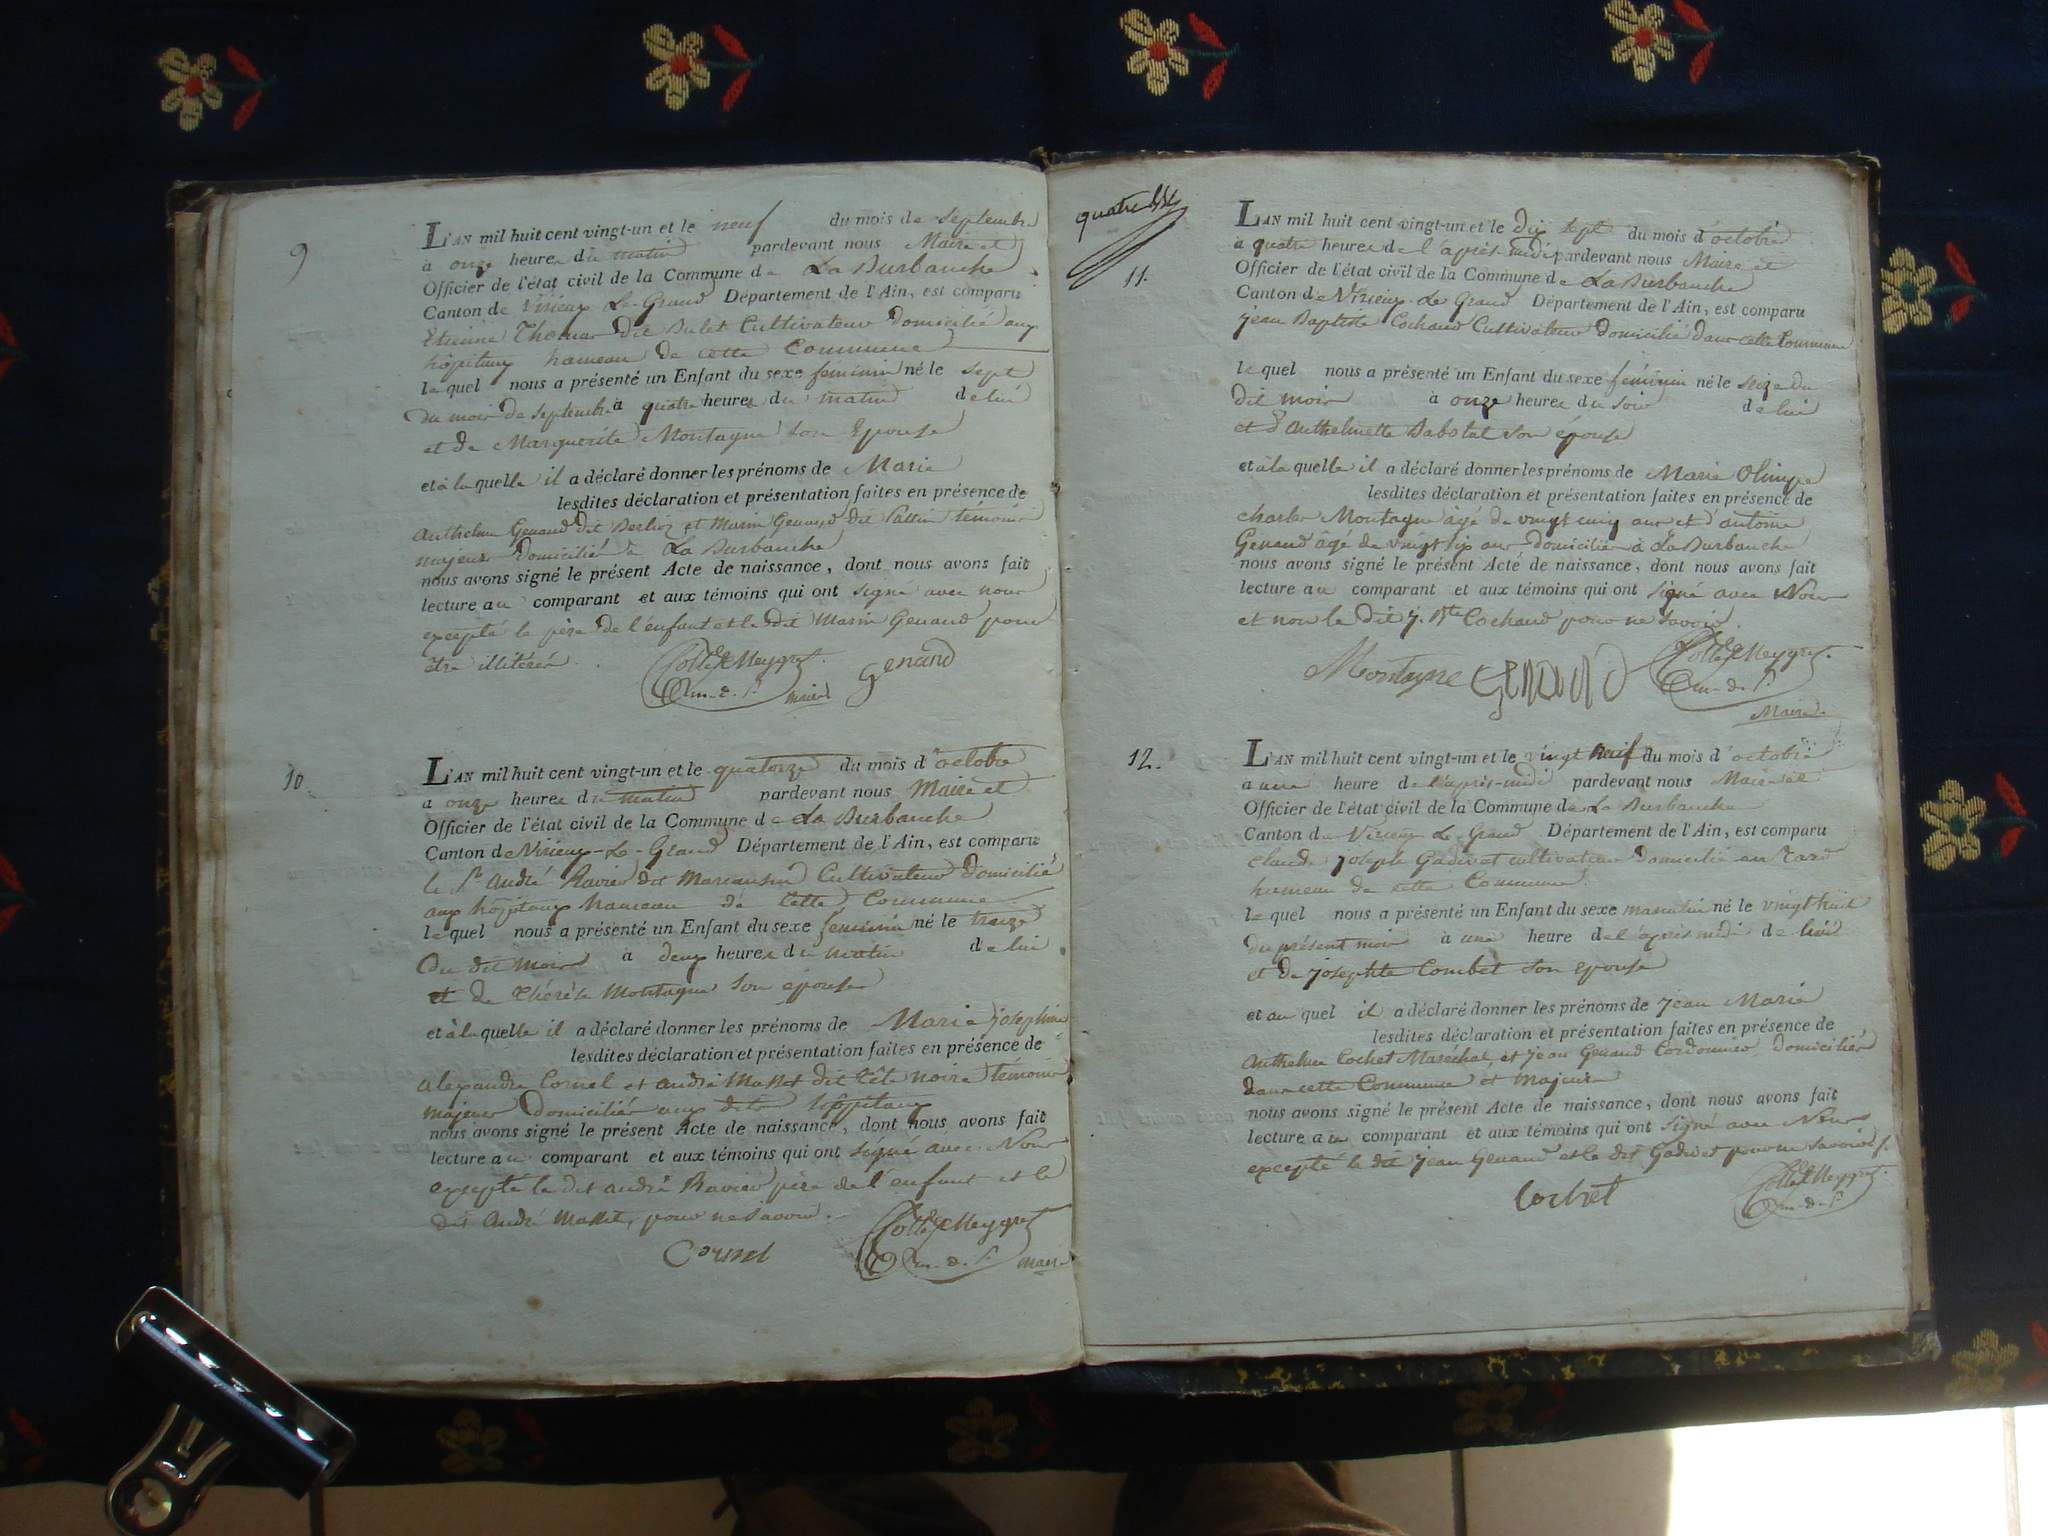 9
L'AN mil huit cent vingt-un et le neuf du mois de septembre
à onze heures du matin pardevant nous Maire et
Officier de l'état civil de la Commune de La Burbanche
Canton de Virieux Le-Grand Département de l'Ain, est comparu
Etienne Thomas dit Bulet Cultivateur Domicilié aux
hôpitaux hameau de cette Commune
lequel nous a présenté un Enfant du sexe féminin né le sept
du mois de septembre à quatre heures du matin de lui
et de Marguerite Montagne son Epouse
et à laquelle il a déclaré donner les prénoms de Marie
lesdites déclaration et présentation faites en présence de
Anthelme Genaud dit Berlioz et Marin Genaud dit témoins
majeurs Domiciliés à La Burbanche
nous avons signé le présent Acte de naissance, dont nous avons fait
lecture au comparant et aux témoins qui ont signé avec nous
excepté le père de l'enfant et le dit Marin Genaud pour
être illitérés.
Maire genand
10
L'AN mil huit cent vingt-un et le quatorze du mois d'octobre
à onze heures du matin pardevant nous Maire et
Officier de l'état civil de la Commune de La Burbanche
Canton de Virieux-Le-Grand Département de l'Ain, est comparu
le Sr André Ravier dit Cultivateur Domicilié
aux hôpitaux hameau de cette Commune
lequel nous a présenté un Enfant du sexe féminin né le treize
du dit mois à deux heures du matin de lui
et de Thérèse Montagne son épouse
et à laquelle il a déclaré donner les prénoms de Marie josephine
lesdites déclaration et présentation faites en présence de
alexandre Cornel et andré Masset dit tête noire témoins
majeurs Domiciliés aux dits hôpitaux
nous avons signé le présent Acte de naissance, dont nous avons fait
lecture au comparant et aux témoins qui ont signé avec Nous
excepté le dit andré Ravier père de l'enfant et le
dit André Masset, pour ne savoir.
Cornel Maire
quatre
11.
L'AN mil huit cent vingt-un et le dix sept du mois d'octobre
à quatre heures de l'après-midi pardevant nous Maire et
Officier de l'état civil de la Commune de La Burbanche
Canton de Virieux-Le Grand Département de l'Ain, est comparu
jean Baptiste Cochaud Cultivateur Domicilié dans cette Commune
lequel nous a présenté un Enfant du sexe féminin né le seize du
dit mois à onze heures du soir de lui
et d'Anthelmette Babolat son épouse
et à laquelle il a déclaré donner les prénoms de Marie Olimpe
lesdites déclaration et présentation faites en présence de
charles Montagne âgé de vingt cinq ans et d'antoine
Genaud âgé de vingt six ans domiciliés à La Burbanche
nous avons signé le présent Acte de naissance, dont nous avons fait
lecture au comparant et aux témoins qui ont signé avec Nous
et non le dit j. Bte Cochaud pour ne savoir.
Montagne GENAUD
Maire
12.
L'AN mil huit cent vingt-un et le vingt neuf du mois d'octobre
à une heure de l'après-midi pardevant nous Maire et
Officier de l'état civil de la Commune de La Burbanche
Canton de Virieux Le-Grand Département de l'Ain, est comparu
claude joseph Gadivet cultivateur domicilié en
hameau de cette Commune
lequel nous a présenté un Enfant du sexe masculin né le vingt huit
du présent mois à une heure de l'après midi de lui
et de josephte Combet son épouse
et auquel il a déclaré donner les prénoms de jean Marie
lesdites déclaration et présentation faites en présence de
Anthelme Cochet Maréchal, et jean Genaud Cordonnier, domiciliés
dans cette Commune et majeurs
nous avons signé le présent Acte de naissance, dont nous avons fait
lecture au comparant et aux témoins qui ont signé avec Nous
excepté le dit jean Genaud et le dit Gadivet pour ne savoir
Cochet